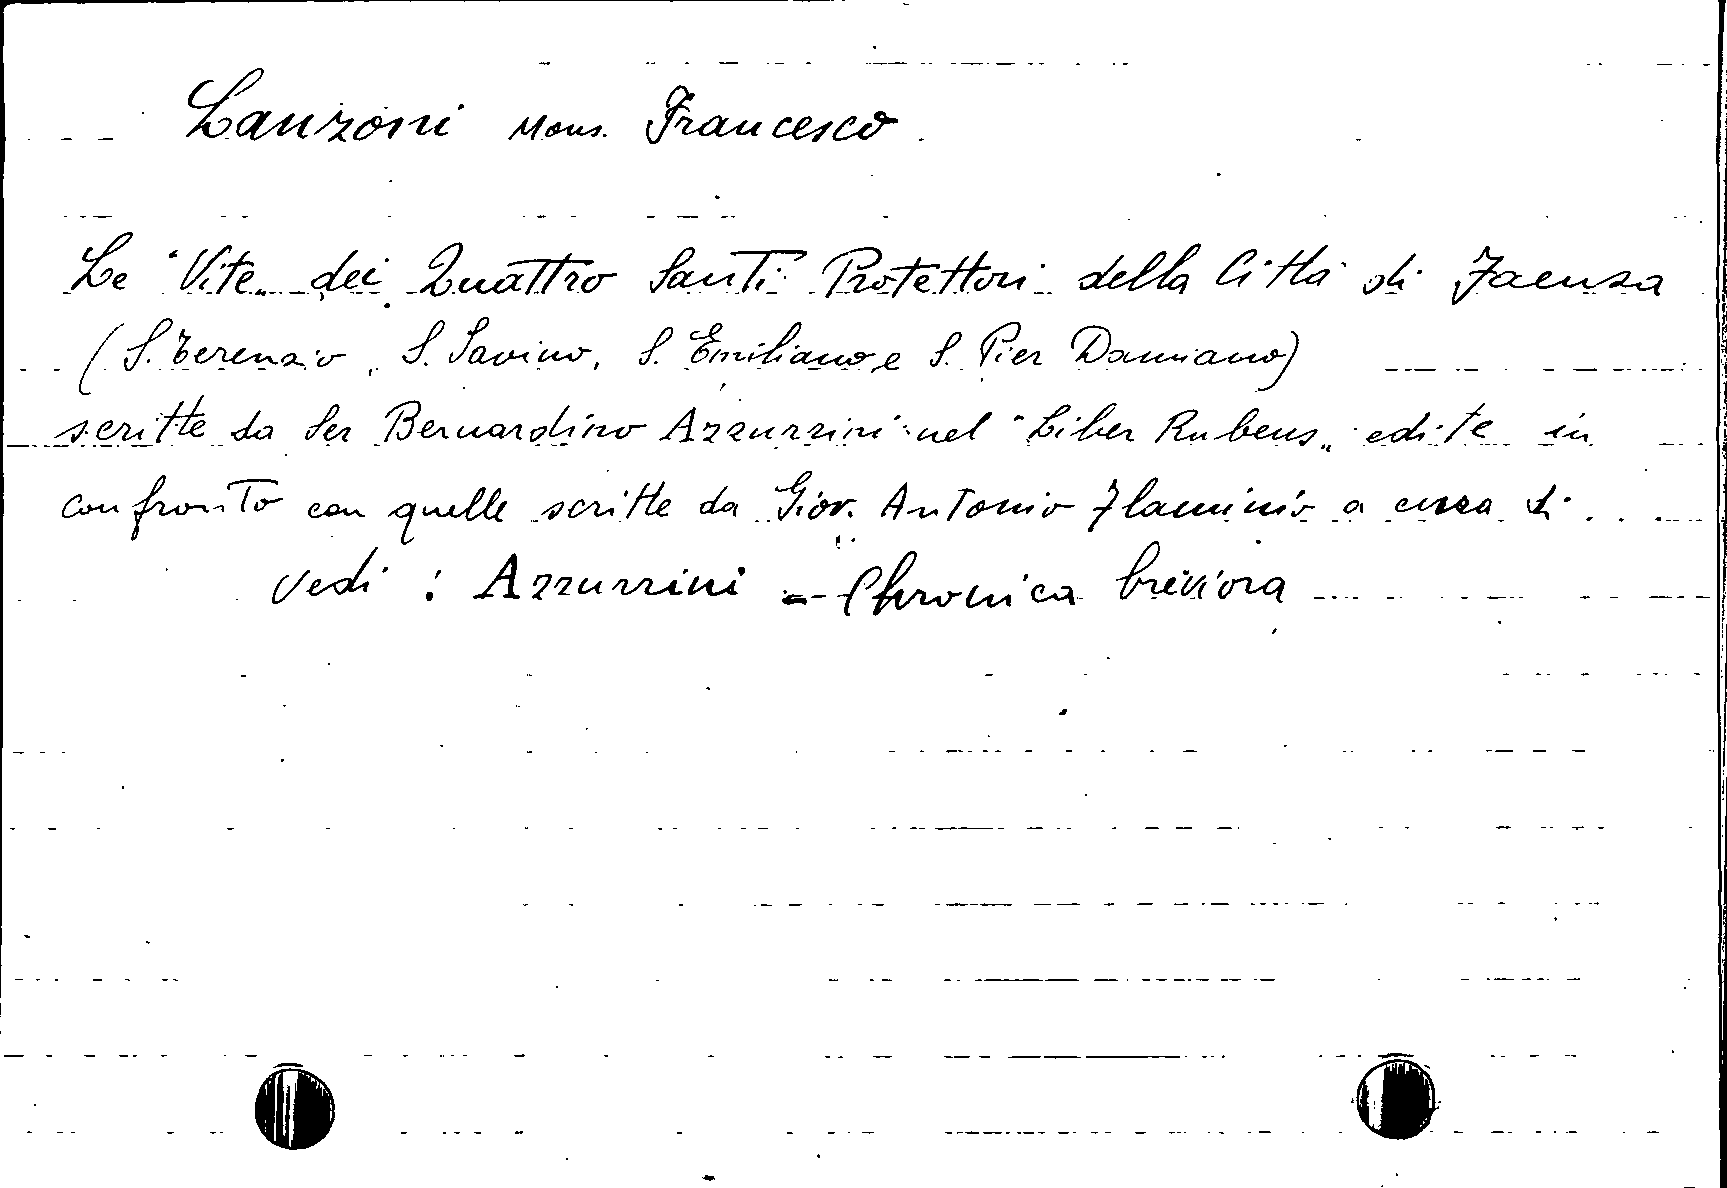 Lanzoni Mons. Francesco
Le "Vite" dei Quattro Santi Protettori della Città di Faenza
(S. Terenzio, S. Savino, S. Emiliano e S. Pier Damiano)
scritte da Ser Bernardino Azzurrini nel "Liber Rubeus" edite in
confronto con quelle scritte da Giov. Antonio Flaminio a cura di...
Vedi: Azzurrini - Chronica breviora